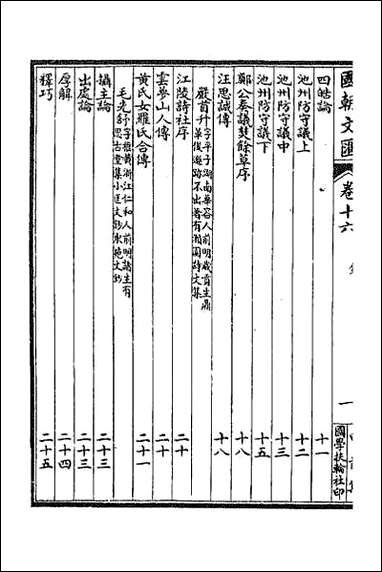 國朝文匯
卷十六
一
國學扶輪社印
四皓論 十一
池州防守議上 十二
池州防守議中 十三
池州防守議下 十五
鄭公奏議焚餘草序 十八
汪思誠傳 十八
嚴首升 字平子湖南華容人前明歲貢生鼎
革後遯跡不出著有瀨園詩文集
江陵詩社序 二十
雲夢山人傳 二十
黃氏女羅氏合傳 二十一
毛先舒 字稚黃浙江仁和人前明諸生有
思古堂集小匡文鈔東苑文鈔
攝主論 二十三
出處論 二十三
厚解 二十四
釋巧 二十五